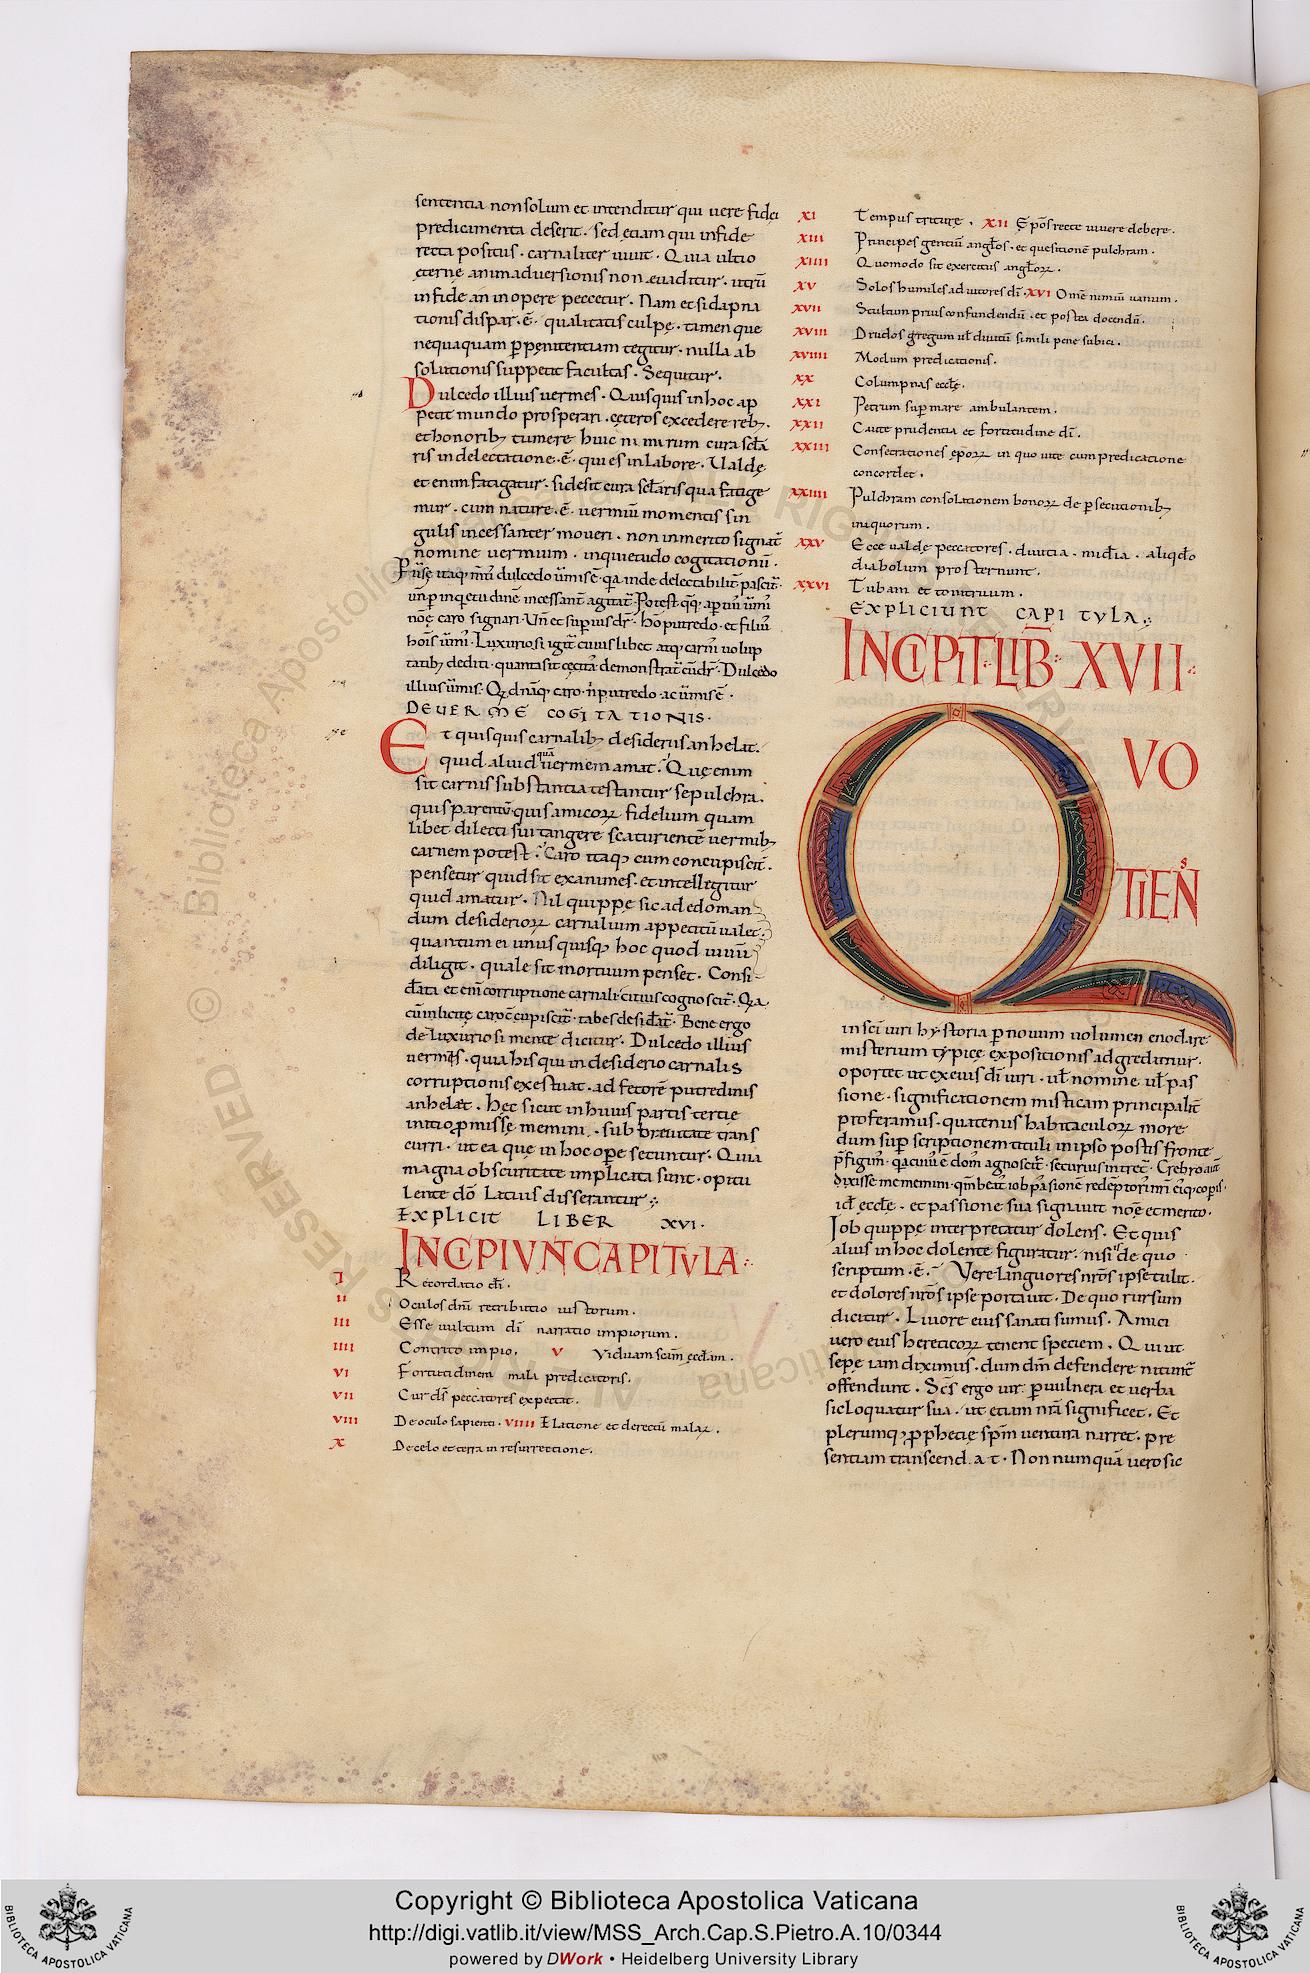 sententia non solum et intenditur qui vere fidei
predicamenta deserit. sed etiam qui in fide
recta positus. carnaliter vivit. Quia ultio
ęternę animadversionis non evaditur. utrū
in fide an in opere peccetur. Nam et si dapna
tionis dispar. ē. qualitas culpę. tamen que
nequaquam p penitentiam tegitur. nulla ab
solutionis suppetit facultas. Sequitur.
Dulcedo illius vermes. Quisquis in hoc ap
petit mundo prosperari. ceteros excedere reb;.
et honorib; tumere huic nimirum cura sc̄la
ris in delectatione. ē. quies in labore. Valde
et enim fatigatur. si desit cura sc̄laris qua fatige
mur. cum nature. ē. vermiū momentis sin
gulis incessanter moveri. non inmerito signat̄
nomine vermium. inquietudo cogitationū.
DE VERME COGITATIONIS.
Et quisquis carnalib; desideriis anhelat.
quid aliud quā vermem amat? Quę enim
sit carnis substantia testantur sepulchra.
quis parentū quis amicoꝝ fidelium quam
libet dilecti sui tangere scaturientē vermib;
carnem potest? Caro itaq; cum concupiscit̄.
pensetur quid sit exanimes. et intellegitur
quid amatur. Nil quippe sic ad edoman
dum desiderioꝝ carnalium appetitū valet.
quantum ei unus quisq; hoc quod vivū
diligit. quale sit mortuum penset. Consi
de luxuriosi mente dicitur. Dulcedo illius
vermes. quia his qui in desiderio carnalis
corruptionis exestuat. ad fetorē putredinis
anhelat. Hęc sicut in huius partis tercię
initio p̄misse memini. sub brevitate trans
curri. ut ea que in hoc ope secuntur. Quia
magna obscuritate implicata sunt. opitu
lente dō Latius disserantur.
EXPLICIT LIBER XVI.
INCIPIUN CAPITULA.
I Recordatio dī.
II Oculos dnī retributio iustorum.
III Esse vultum dī narratio impiorum.
IIII Contrito impio. V Viduam scīm ęcclam.
VI Fortitudinem mala predicatoris.
VII Cur ds̄ peccatores expectat.
VIII De oculo sapienti. VIIII Elatione et derectū malaꝝ.
X De celo et terra in resurrectione.
XI Tempus triture. XII Ep̄os recte vivere debere.
XIII Principes gentiū angl̄os. et quesitionē pulchram.
XIIII Quomodo sit exercitus angl̄oꝝ.
XV Solos humiles adiutores dī. XVI Omnē nimiū vanum.
XVII Stultum prius confundendū. et postea docendū.
XVIII Drudos gregum ul̄ divitū simili pene subici.
XVIIII Modum predicationis.
XX Columpnas eccl̄ę.
XXI Petrum sup mare ambulantem.
XXII Caute prudentia et fortitudine dī.
XXIII Consecrationes ep̄oꝝ in quo vite cum predicatione
concordet.
XXIIII Pulchram consolationem bonoꝝ de psecutionib;
iniquorum.
XXV Ecce valde peccatores. divitia. mid̄ia. aliqdo
diabolum prosternunt.
XXVI Tubam et tonitruum.
EXPLICIUNT CAPITULA.
INCIPIT LIB̄ XVII.
QUO
TIENS
in scī viri hystoria p novum volumen enodare
misterium typicę expositionis adgredimur.
oportet ut ex eius dī viri. ul̄ nomine ul̄ pas
sione. significationem misticam principalit̄
proferamus. quatenus habitaculoꝝ more
dum sup scriptionem tituli in ipso postis fronte
id ē eccl̄ę. et passione sua signavit noē et merito.
Iob quippe interpretatur dolens. Et quis
alius in hoc dolente figuratur. nisi is de quo
scriptum. ē. Vere languores nr̄os ipse tulit.
et dolores nr̄os ipse portavit. De quo rursum
dicitur. Livore eius sanati sumus. Amici
vero eius hereticoꝝ tenent speciem. Qui ut
sepe iam diximus. dum dm̄ defendere nitunt̄
offendunt. Scs̄ ergo vir p vulnera et verba
sic loquatur sua. ut etiam nr̄a significet. Et
plerumq; p pphecię spm̄ ventura narret. pre
sentiam transcendat. Nonnumquā vero sic
Copyright © Biblioteca Apostolica Vaticana
http://digi.vatlib.it/view/MSS_Arch.Cap.S.Pietro.A.10/0344
powered by DWork • Heidelberg University Library
BIBLIOTECA APOSTOLICA VATICANA
BIBLIOTECA APOSTOLICA VATICANA